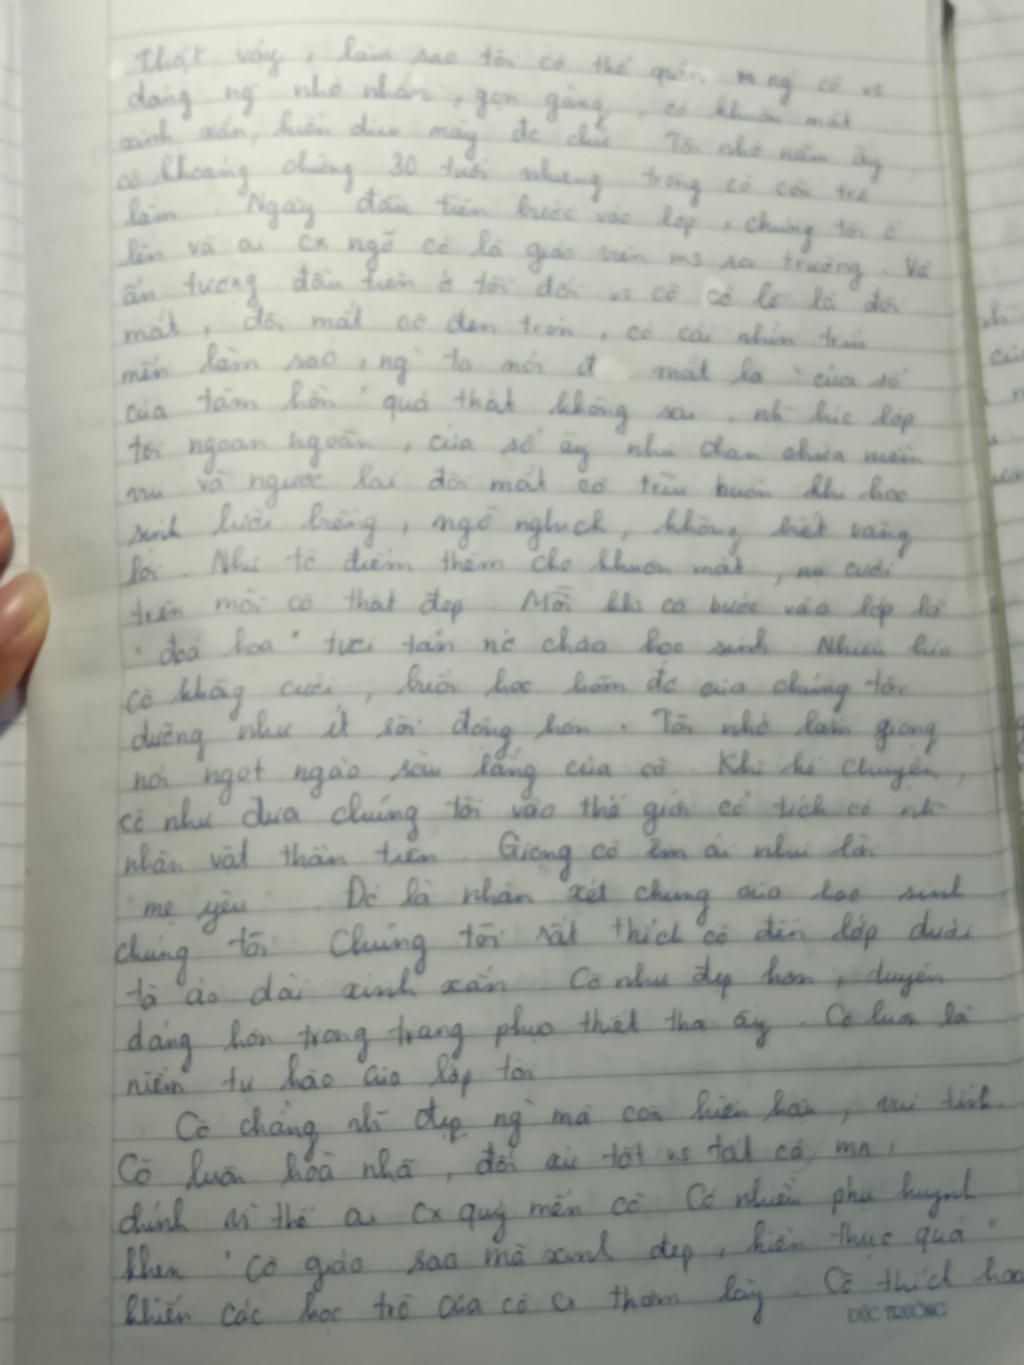 Thật vậy, làm sao tôi có thể quên ng cô vs
dáng ng nhỏ nhắn, gọn gàng, có khuôn mặt
xinh xắn, hiền dịu mấy đc chứ. Tôi nhớ năm ấy
cô khoảng chừng 30 tuổi nhưng trông cô còn trẻ
lắm. Ngày đầu tiên bước vào lớp, chúng tôi ồ
lên và ai cx ngỡ cô là giáo viên ms ra trường. Và
ấn tượng đầu tiên ở tôi đối vs cô có lẽ là đôi
mắt, đôi mắt cô đen tròn, có cái nhìn trìu
mến làm sao, ng ta nói đ mắt là "cửa sổ
của tâm hồn" quả thật không sai. nh~ lúc lớp
tôi ngoan ngoãn, cửa sổ ấy như chan chứa niềm
vui và ngược lại đôi mắt cô trĩu buồn khi học
sinh lười biếng, ngỗ nghịch, không biết vâng
lời. Như tô điểm thêm cho khuôn mặt, nụ cười
trên môi cô thật đẹp. Mỗi khi cô bước vào lớp là
"đoá hoa" tươi tắn nở chào học sinh. Nhiều lúc
cô khôg cười, buổi học hôm đó của chúng tôi
dường như ít sôi động hơn. Tôi nhớ lắm giọng
nói ngọt ngào sâu lắng của cô. Khi kể chuyện,
cô như đưa chúng tôi vào thế giới cổ tích có nh~
nhân vật thần tiên. Giọng cô êm ái như lời
mẹ yêu Đó là nhận xét chung của học sinh
chúng tôi. Chúng tôi rất thích cô đến lớp dưới
tà áo dài xinh xắn. Cô như đẹp hơn, duyên
dáng hơn trong trang phục thiết tha ấy. Cô luôn là
niềm tự hào của lớp tôi
Cô chẳng nh~ đẹp ng mà còn hiền hậu, vui tính.
Cô luôn hoà nhã, đối xử tốt vs tất cả mn,
chính vì thế ai cx quý mến cô. Có nhiều phụ huynh
khen "Cô giáo sao mà xinh đẹp, hiền thục quá"
khiến các học trò của cô cx thơm lây. Cô thích hoa
ĐỨC TRƯỜNG